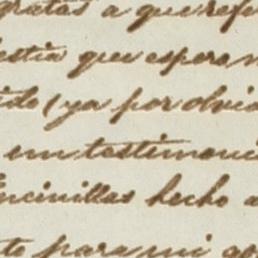 gratas a que refe
estia que espera
ido (ya por olvid
un testimoni
Encinillas hecho a
to para mi go